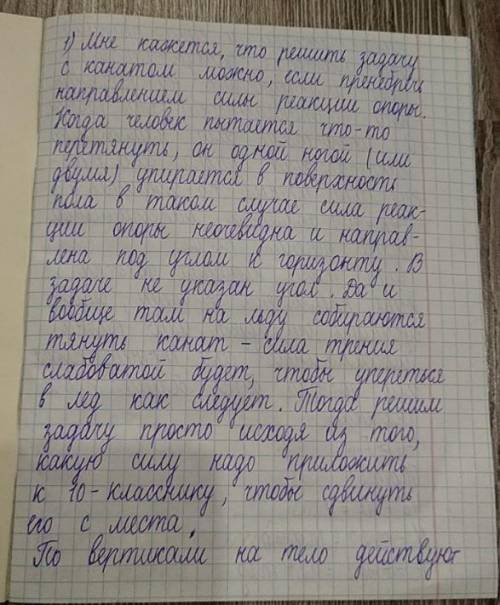 1) Мне кажется, что решить задачу
с канатом можно, если пренебречь
направлением силы реакции опоры.
Когда человек пытается что-то
перетянуть, он одной ногой (или
двумя) упирается в поверхность
пола в таком случае сила реак-
ции опоры неочевидна и направ-
лена под углом к горизонту. В
задаче не указан угол. Да и
вообще там на льду собираются
тянуть канат - сила трения
слабоватой будет, чтобы упереться
в лед как следует. Тогда решим
задачу просто исходя из того,
какую силу надо приложить
к 10-класснику, чтобы сдвинуть
его с места.
По вертикали на тело действуют